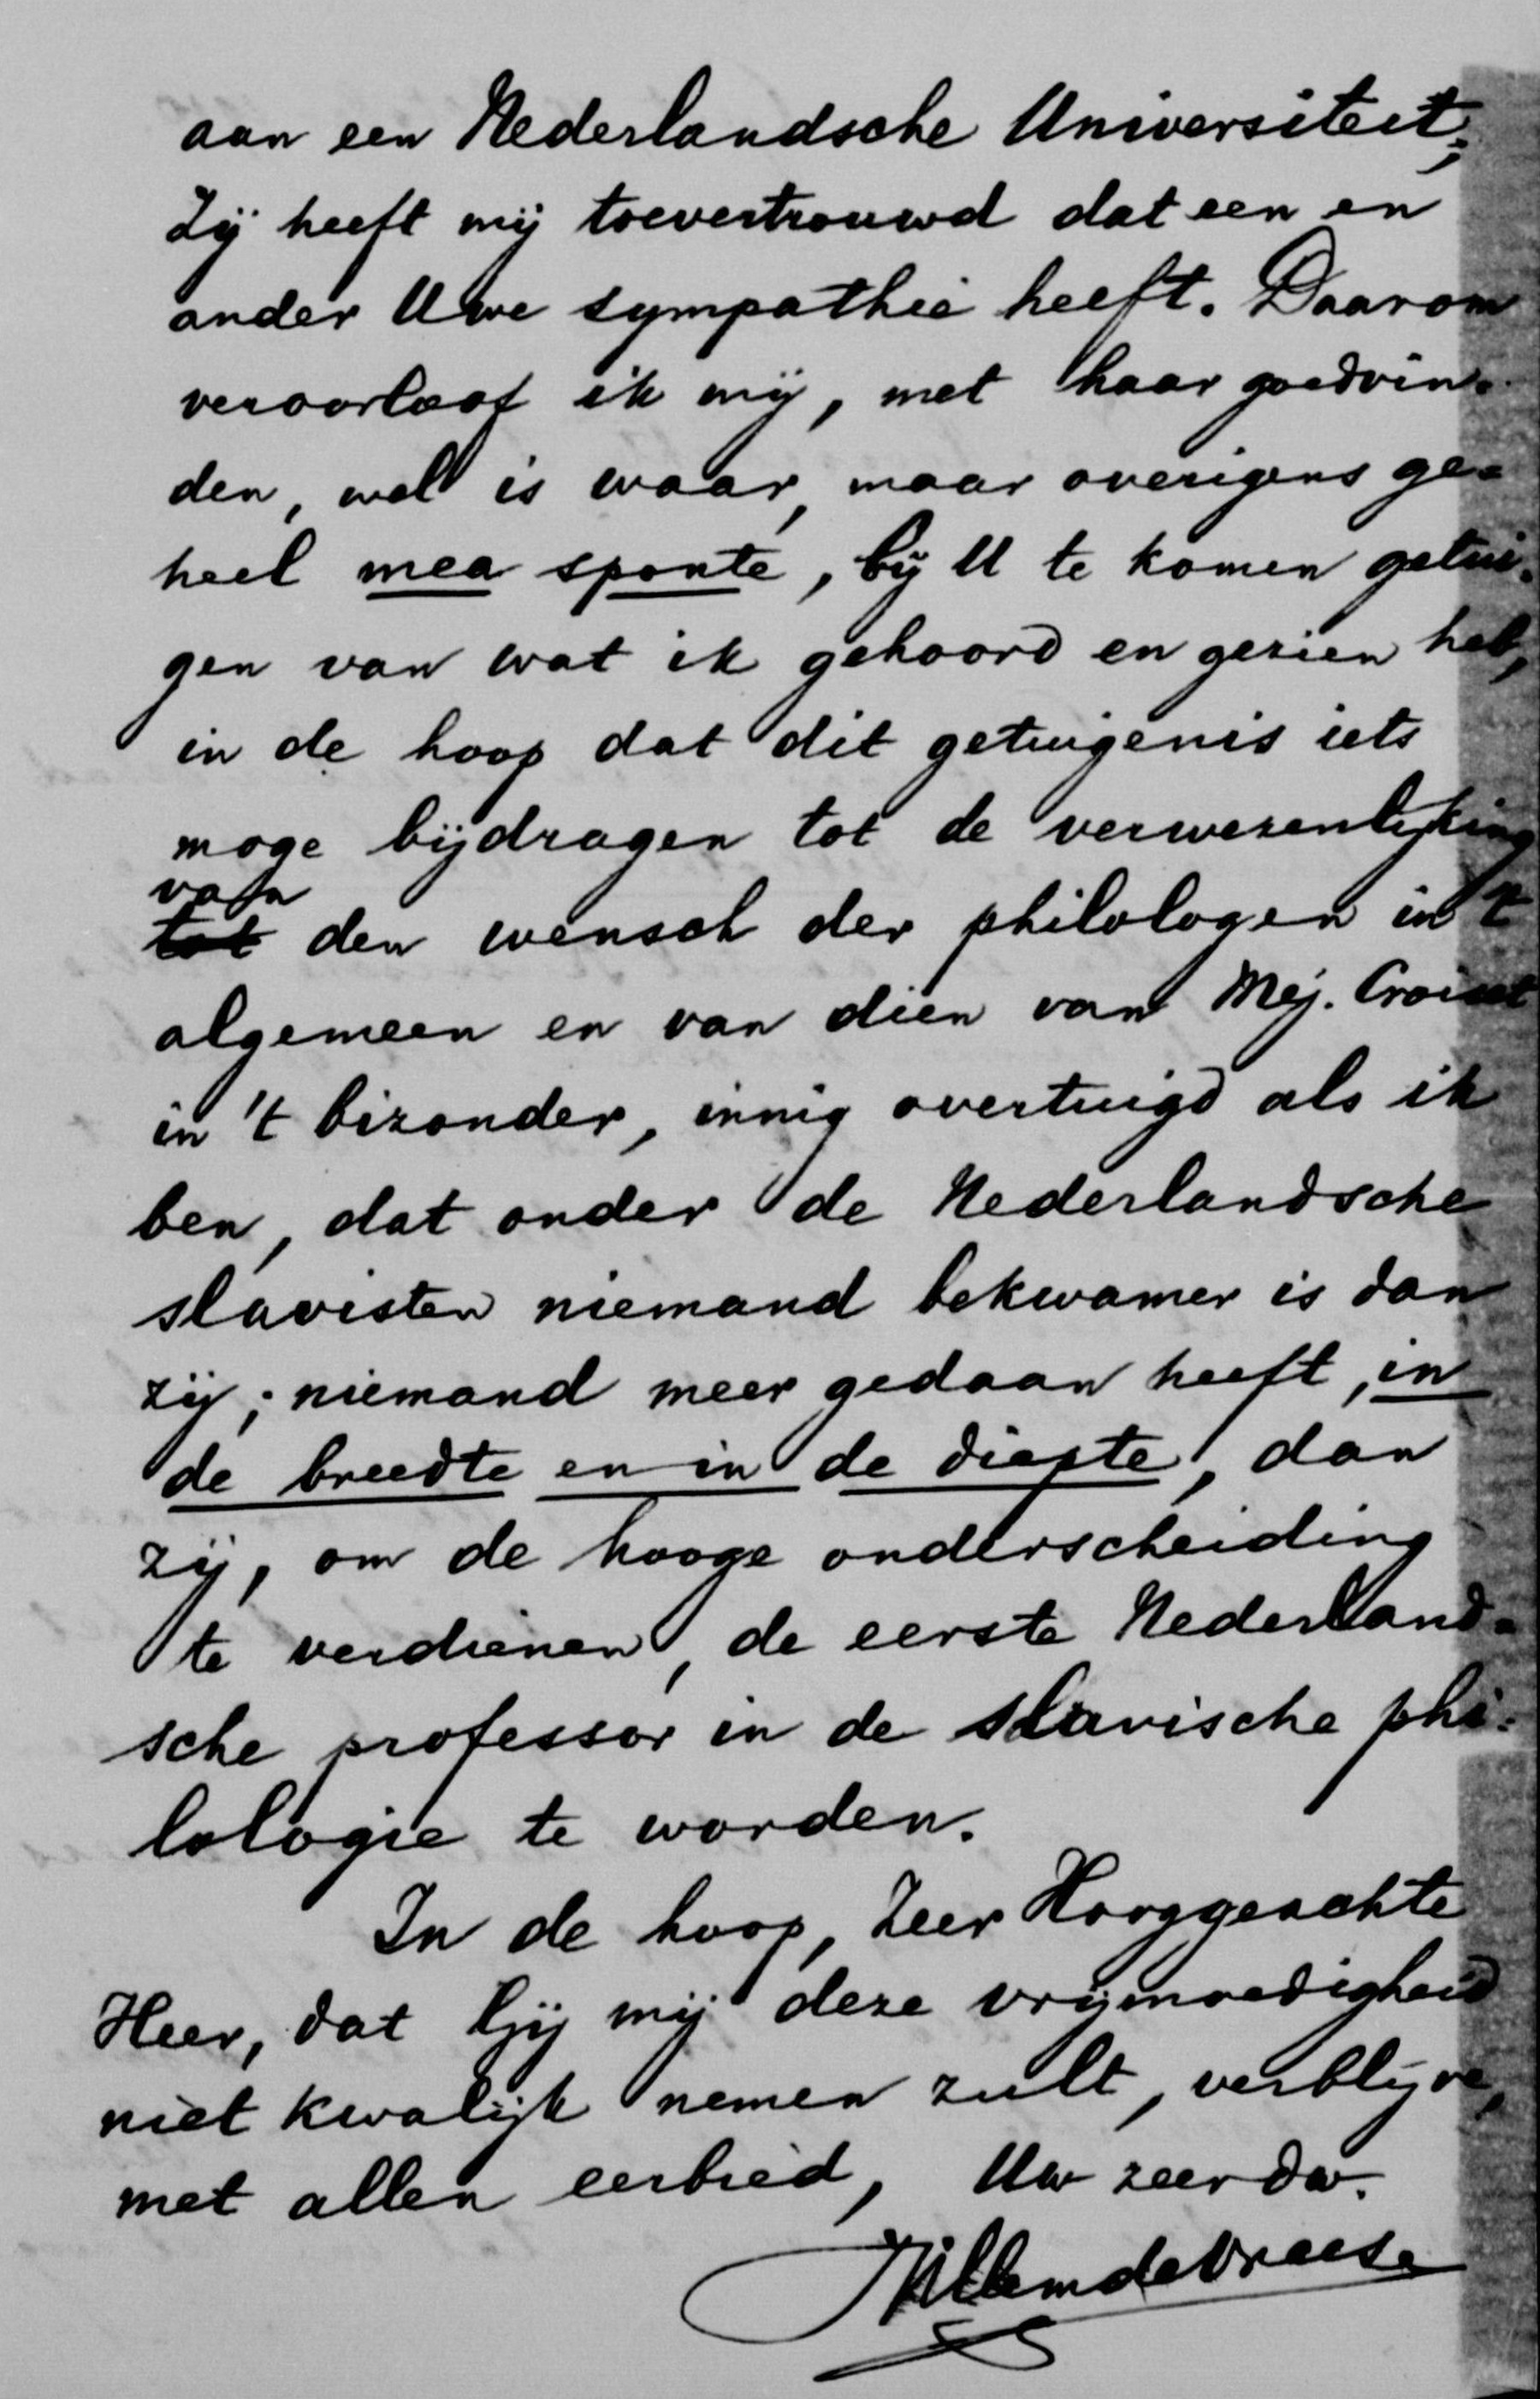 aan een Nederlandsche Universiteit;
Zij heeft mij toevertrouwd dat een en
ander Uwe sympathie heeft. Daarom
veroorloof ik mij, met haar goedvin-
den, wel is waar, maar overigens ge-
heel mea sponte, bij U te komen getui-
gen van wat ik gehoord en gezien heb,
in de hoop dat dit getuigenis iets
moge bijdragen tot de verwezenlijking
van
tot den wensch der philologen in 't
algemeen en van dien van Mej. Croiset
in 't bizonder, innig overtuigd als ik
ben, dat onder de Nederlandsche
slavisten niemand bekwamer is dan
zij; niemand meer gedaan heeft, in
de breedte en in de diepte, dan
zij, om de hooge onderscheiding
te verdienen, de eerste Nederland-
sche professor in de slavische phi-
lologie te worden.
In de hoop, Zeer Hooggeachte
Heer, dat Gij mij deze vrijmoedigheid
niet kwalijk nemen zult, verblijve,
met allen eerbied, Uw zeer dw.
Willem de Vreese